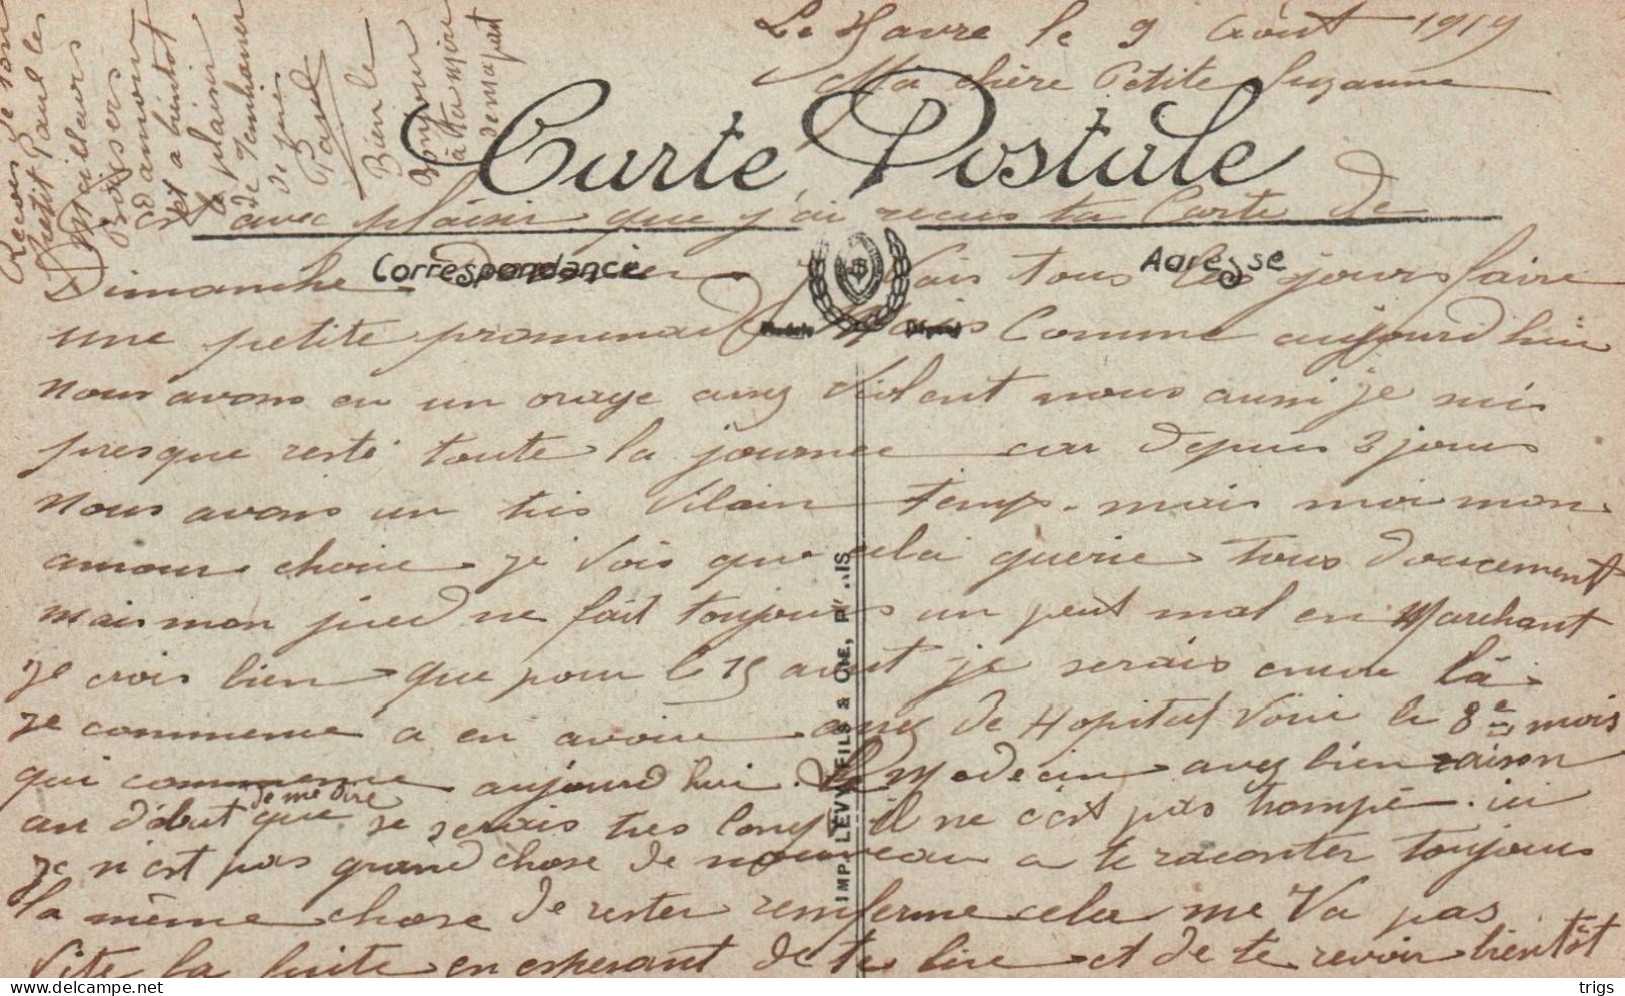 Le Havre le 9 Août 1919
Ma chère Petite Suzanne
Carte Postale
C'est avec plaisir que j'ai recus ta Carte de
Correspondance
Adresse
Dimanche dernier. je Vais tous les jours faire
une petite promenade Mais Comme aujourd hui
Modèle Déposé
nous avons eu un orage assez Violent nous aussi je suis
presque resté toute la journée car depuis 3 jours
nous avons un tres Vilain temps. mais moi mon
amour cherie je Vois que cela guerie tous doucement
mais mon pied me fait toujours un peut mal en Marchant
je crois bien que pour le 15 aout je serais encore là
je commence a en avoir assez de Hopital Voici le 8e mois
qui commence aujourd hui. Le Medecin avez bien raison
au début de me dire que je serais tres long il ne c'est pas trompé. ici
je n'est pas grand chose de nouveau a te raconter toujours
la même chose de rester renfermé cela me Va pas
Vite la suite en esperant de te lire et de te revoir bientôt
Recois de ton
Petit Paul les
Meilleurs
Baisers
D'amour
et a bientot
le plaisir
de
de Jous
Paul
Bien le
Bonjour
à ta mère
de ma part
IMP. LEVY FILS & CIE, PARIS
trigs